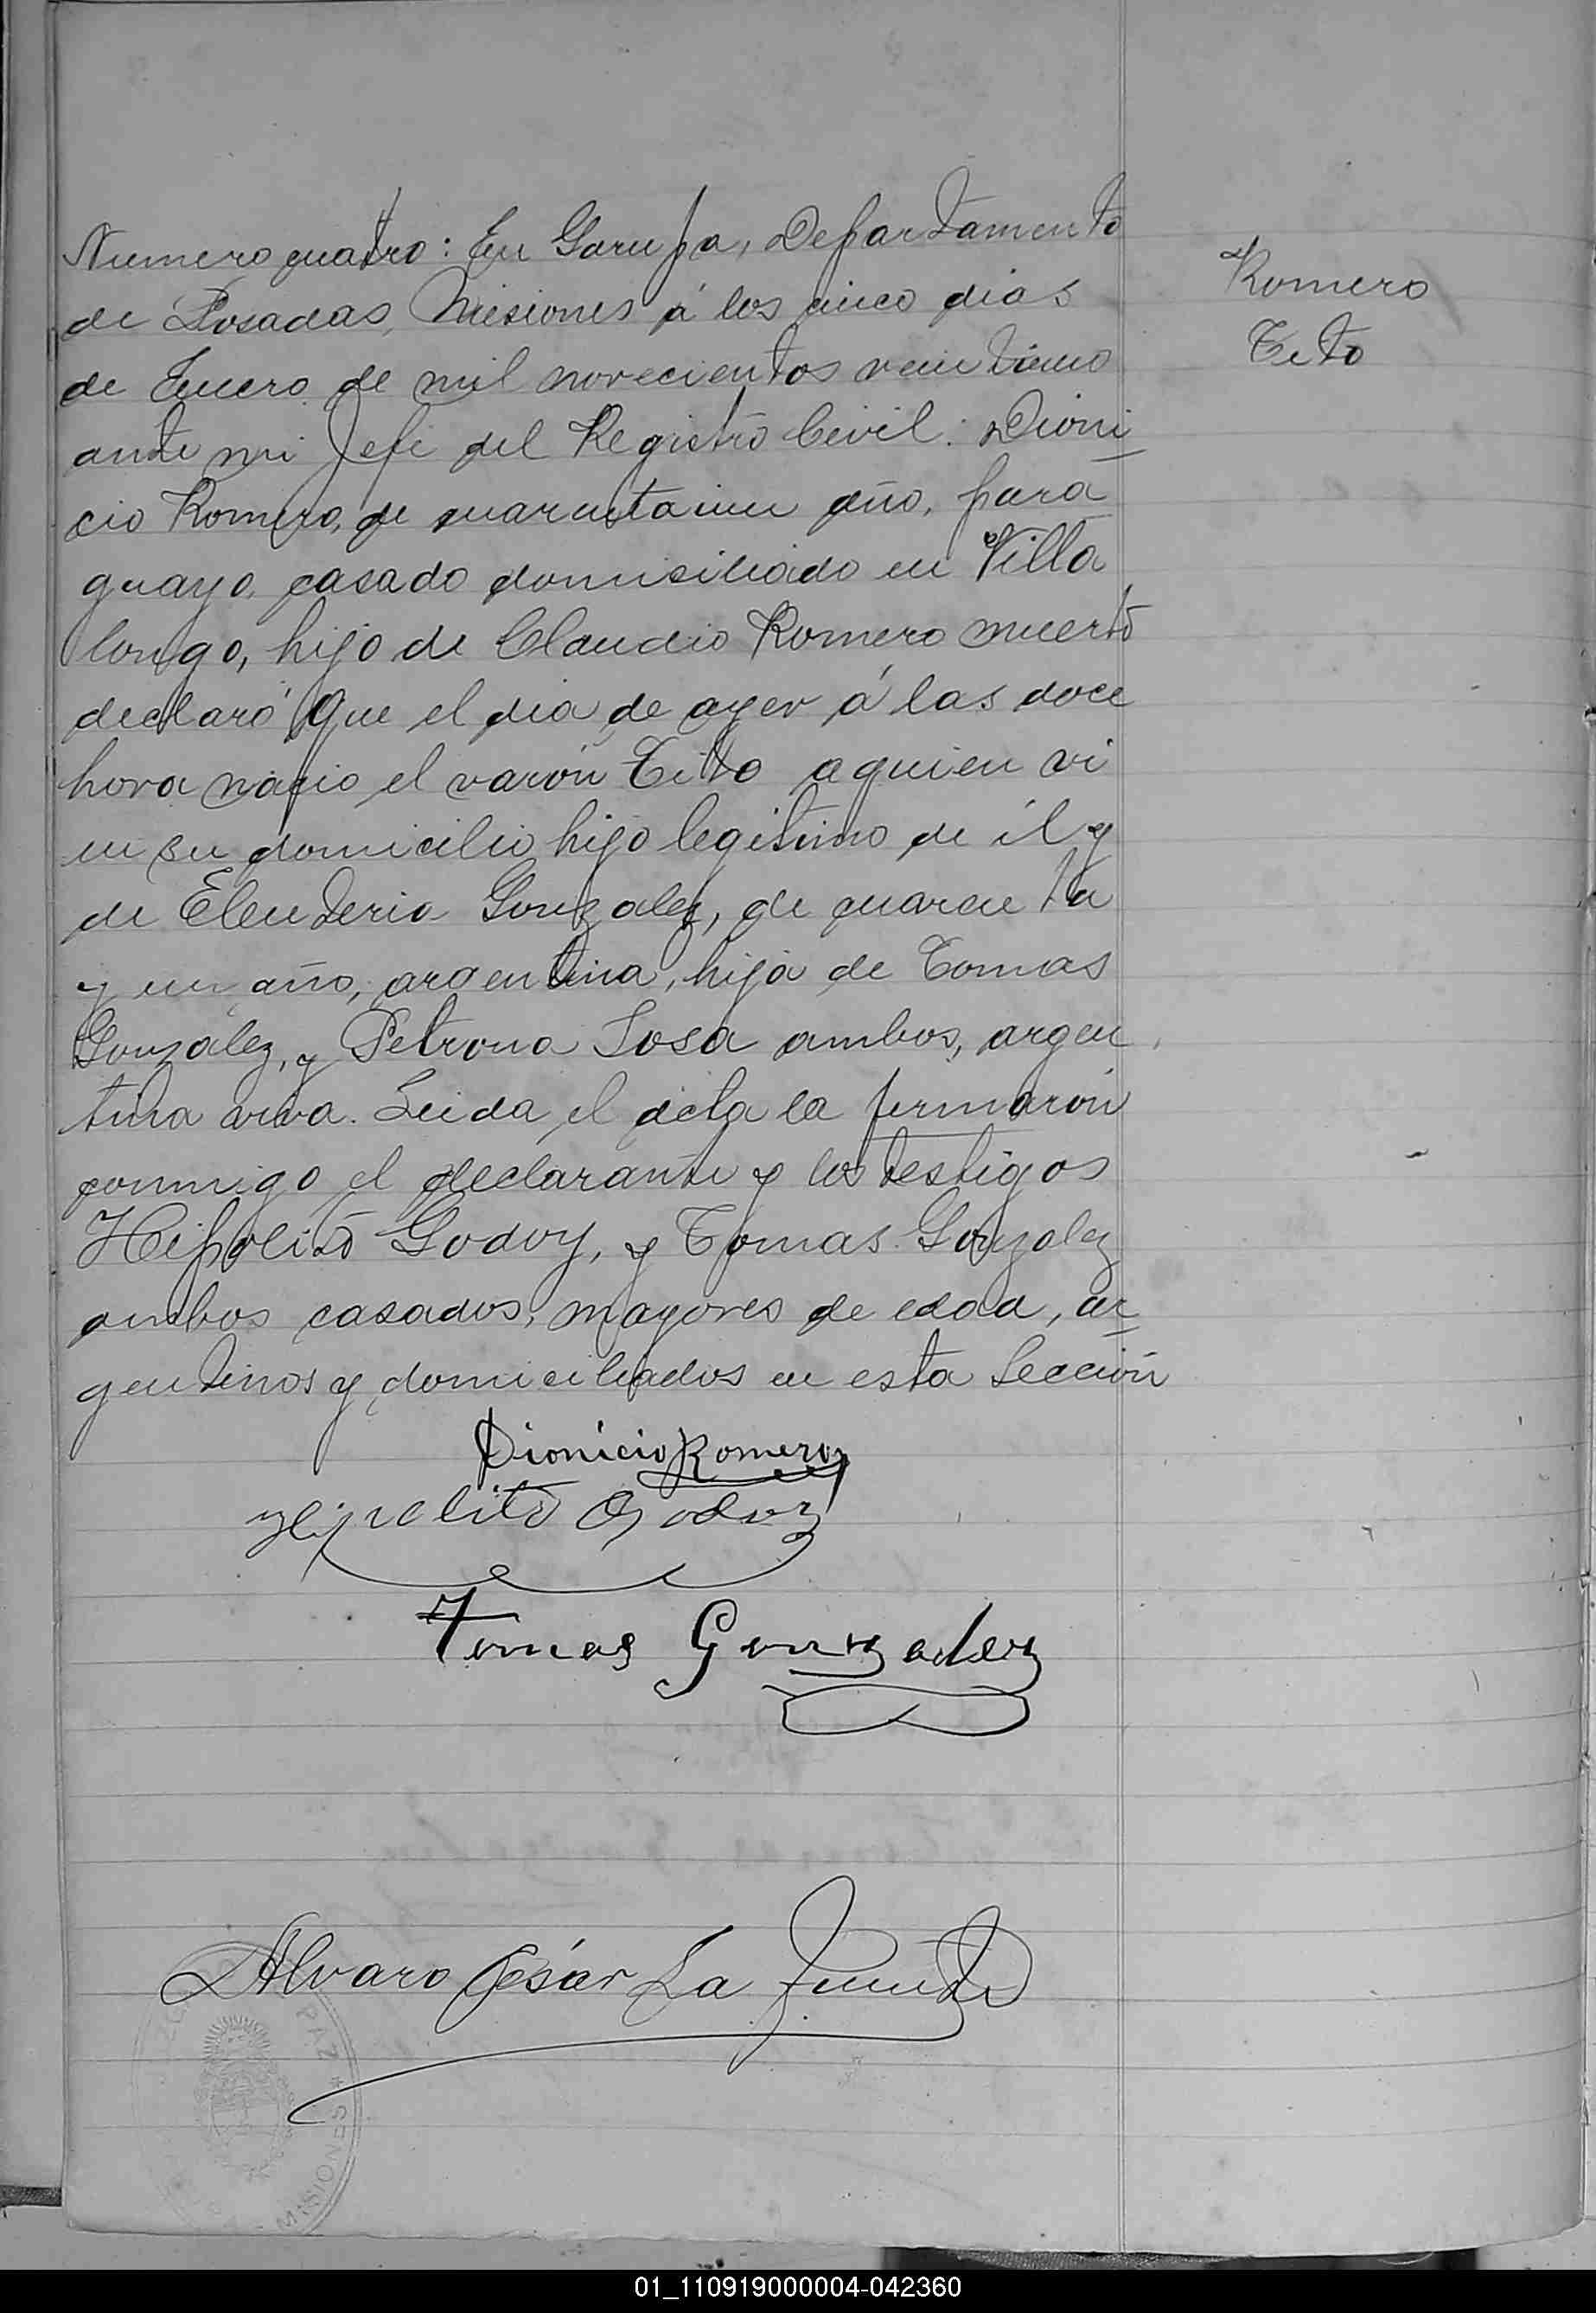 Numero cuatro: En Garupa, Departamento
de Posadas, Misiones á los cinco dias
de Enero de mil novecientos veintiuno
ante mi Jefe del Registro Civil: Dioni
cio Romero, de cuarenta año, para
guayo, casado domiciliado en Villa
longo, hijo de Claudio Romero muerto
declaró que el dia de ayer á las doce
hora nacio el varón Tito aquien vi
en su domicilio hijo legitimo de él y
de Eleuteria Gonzalez, de cuarenta
y un año, argentina, hija de Tomas
Gonzalez, y Petrona Sosa ambos, argen
tina viva. Leida el acta la firmarón
conmigo el declarante y los testigos
Hipolito Godoy, y Tomas Gonzalez
ambos casados, mayores de edad, ar
gentinos y domiciliados en esta Sección
Dionicio Romero
Hipolito Godoy
Tomas Gonzalez
Alvaro César La Fuente
Romero
Tito
PAZ * MISIONES
01_110919000004-042360